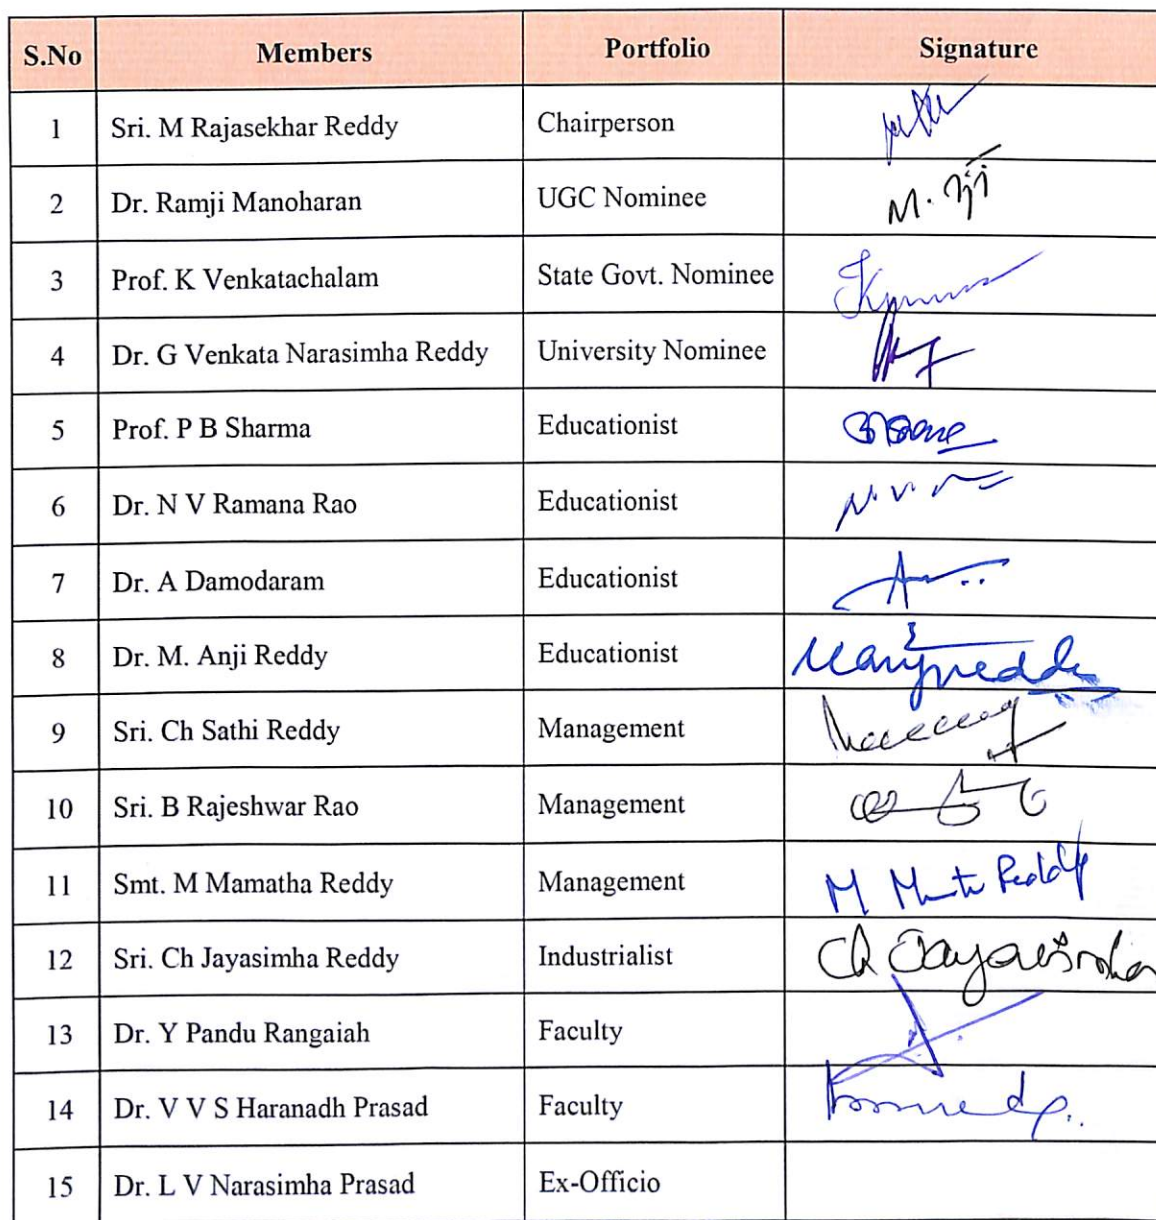 S.No Members Portfolio Signature
1 Sri. M Rajasekhar Reddy Chairperson
2 Dr. Ramji Manoharan UGC Nominee
3 Prof. K Venkatachalam State Govt. Nominee
4 Dr. G Venkata Narasimha Reddy University Nominee
5 Prof. P B Sharma Educationist
6 Dr. N V Ramana Rao Educationist
7 Dr. A Damodaram Educationist
8 Dr. M. Anji Reddy Educationist
9 Sri. Ch Sathi Reddy Management
10 Sri. B Rajeshwar Rao Management
11 Smt. M Mamatha Reddy Management M Reddy
12 Sri. Ch Jayasimha Reddy Industrialist Ch Jayasimha
13 Dr. Y Pandu Rangaiah Faculty
14 Dr. V V S Haranadh Prasad Faculty
15 Dr. L V Narasimha Prasad Ex-Officio